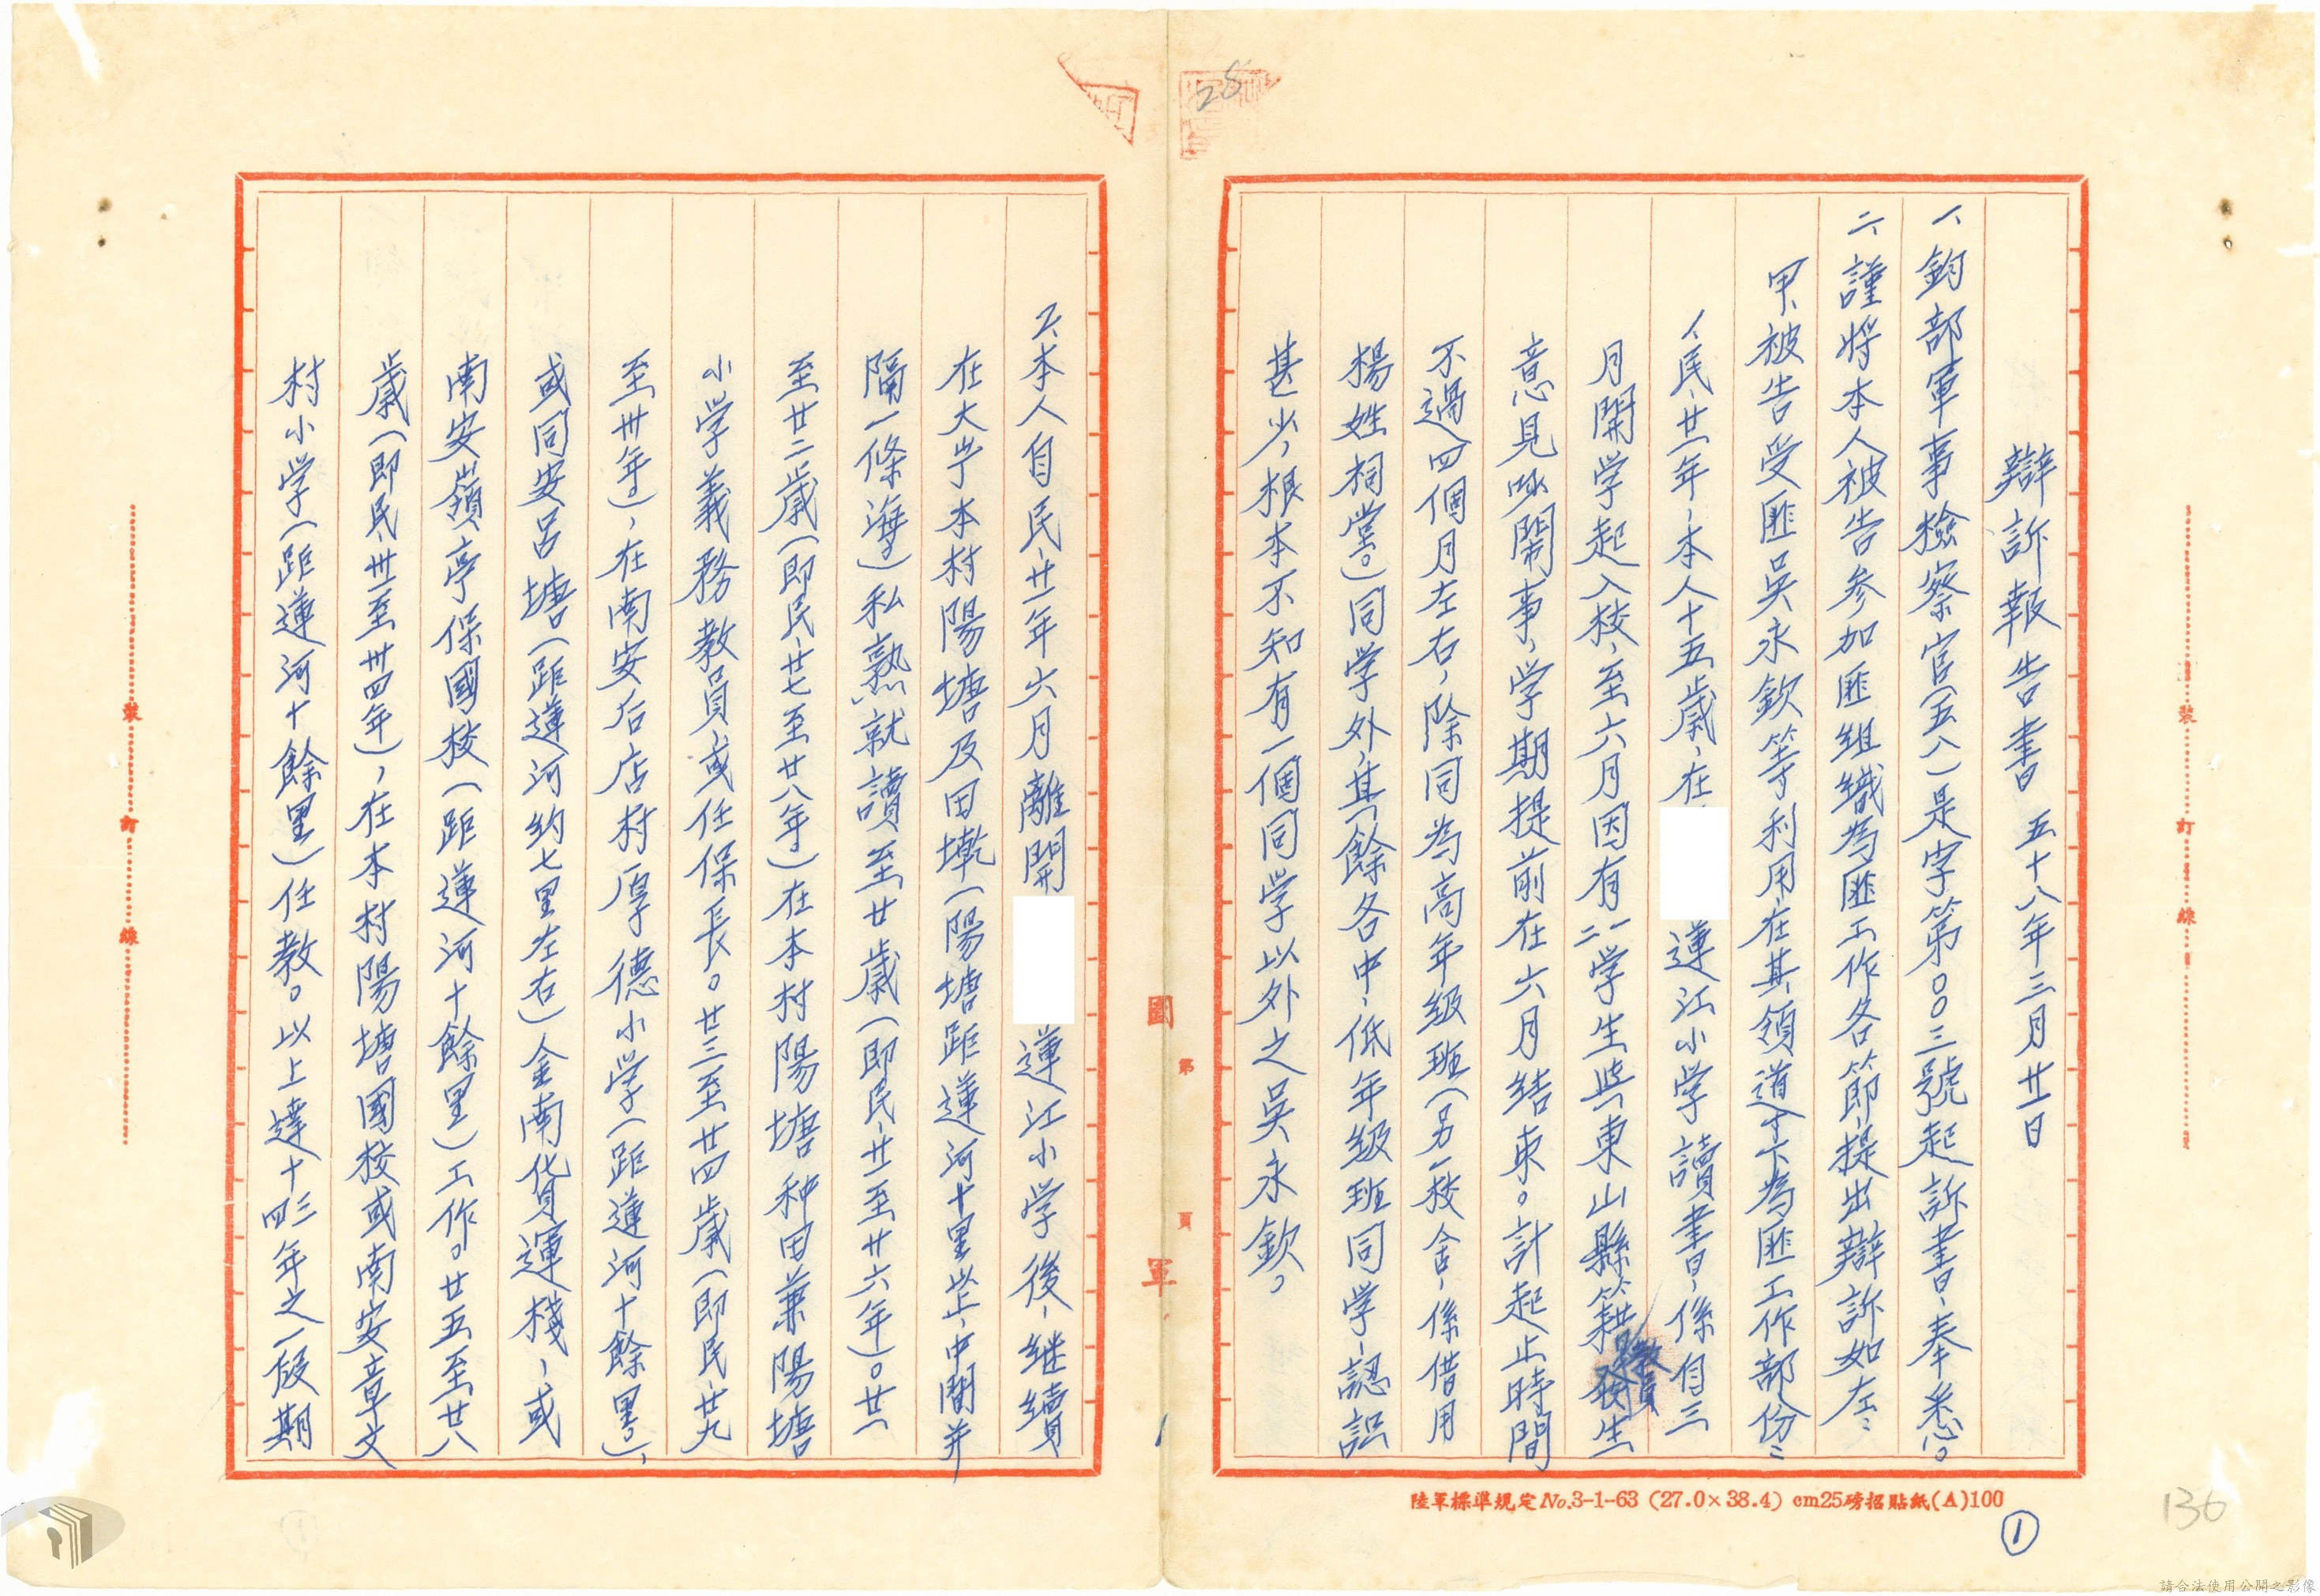 辯訴報告書 五十八年三月廿一日
一、鈞部軍事檢察官(五八)是字第〇〇三號起訴書、奉悉。
二、謹將本人被告參加匪組織為匪工作各節、提出辯訴如左：
甲、被告受匪吳永欽等利用、在其領導下為匪工作部份：
1、民、廿一年、本人十五歲、在 蓮江小学讀書、係自三
月開学起入校、至六月因有一二学生與東山縣籍教員發生
意見吵鬧事、学期提前在六月結束。計起止時間
不過四個月左右，除同為高年級班(另一校舍、係借用
楊姓祠堂。)同学外、其餘各中、低年級班同学、認識
甚少，根本不知有一個同学以外之吳永欽。
2、本人自民、廿一年六月離開 蓮江小学後、継續
在大嶝本村陽塘及田墘(陽塘距蓮河十里些、中間并
隔一條海。)私熟就讀至廿歲(即民、廿一至廿六年)。廿一
至廿二歲(即民、廿七至廿八年)在本村陽塘种田兼陽塘
小学義務教員或任保長。廿三至廿四歲(即民、廿九
至卅年。)，在南安后店村厚德小学(距蓮河十餘里。)，
或同安呂塘(距蓮河約七里左右)金南貨運棧，或
南安嶺亭保國校(距蓮河十餘里)工作。廿五至廿八
歲(即民、卅一至卅四年)，在本村陽塘國校或南安章文
村小学(距蓮河十餘里)任教。以上達十三四年之一段期
國
軍
第
頁
裝
訂
線
裝
訂
線
陸軍標準規定No.3-1-63 (27.0×38.4) cm25磅招貼紙(A)100
1
28
136
請合法使用公開之影像